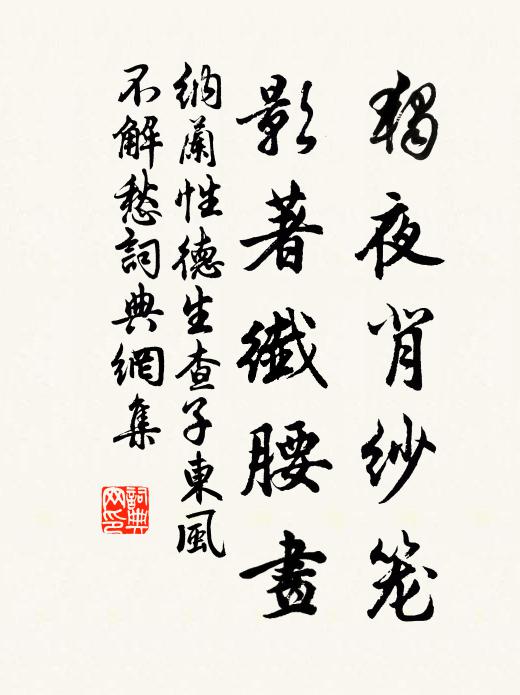 獨夜背紗笼
影著纖腰畫
納蘭性德生查子東風
不解愁詞典網集
詞典
网印